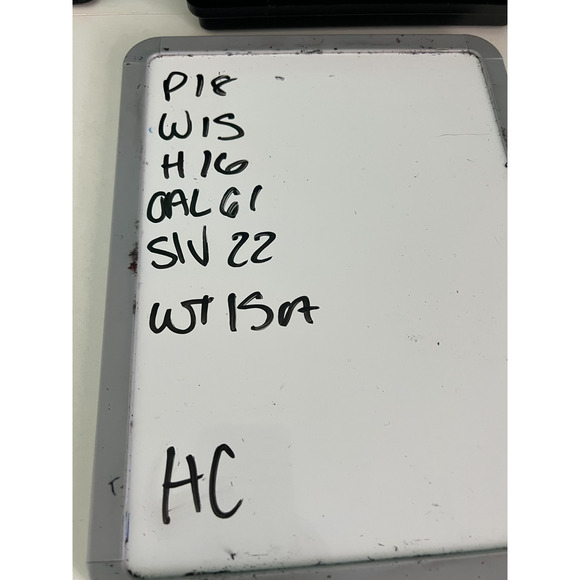 P18
W15
H 16
OAL 61
SLV 22
WT 15 oz
HC